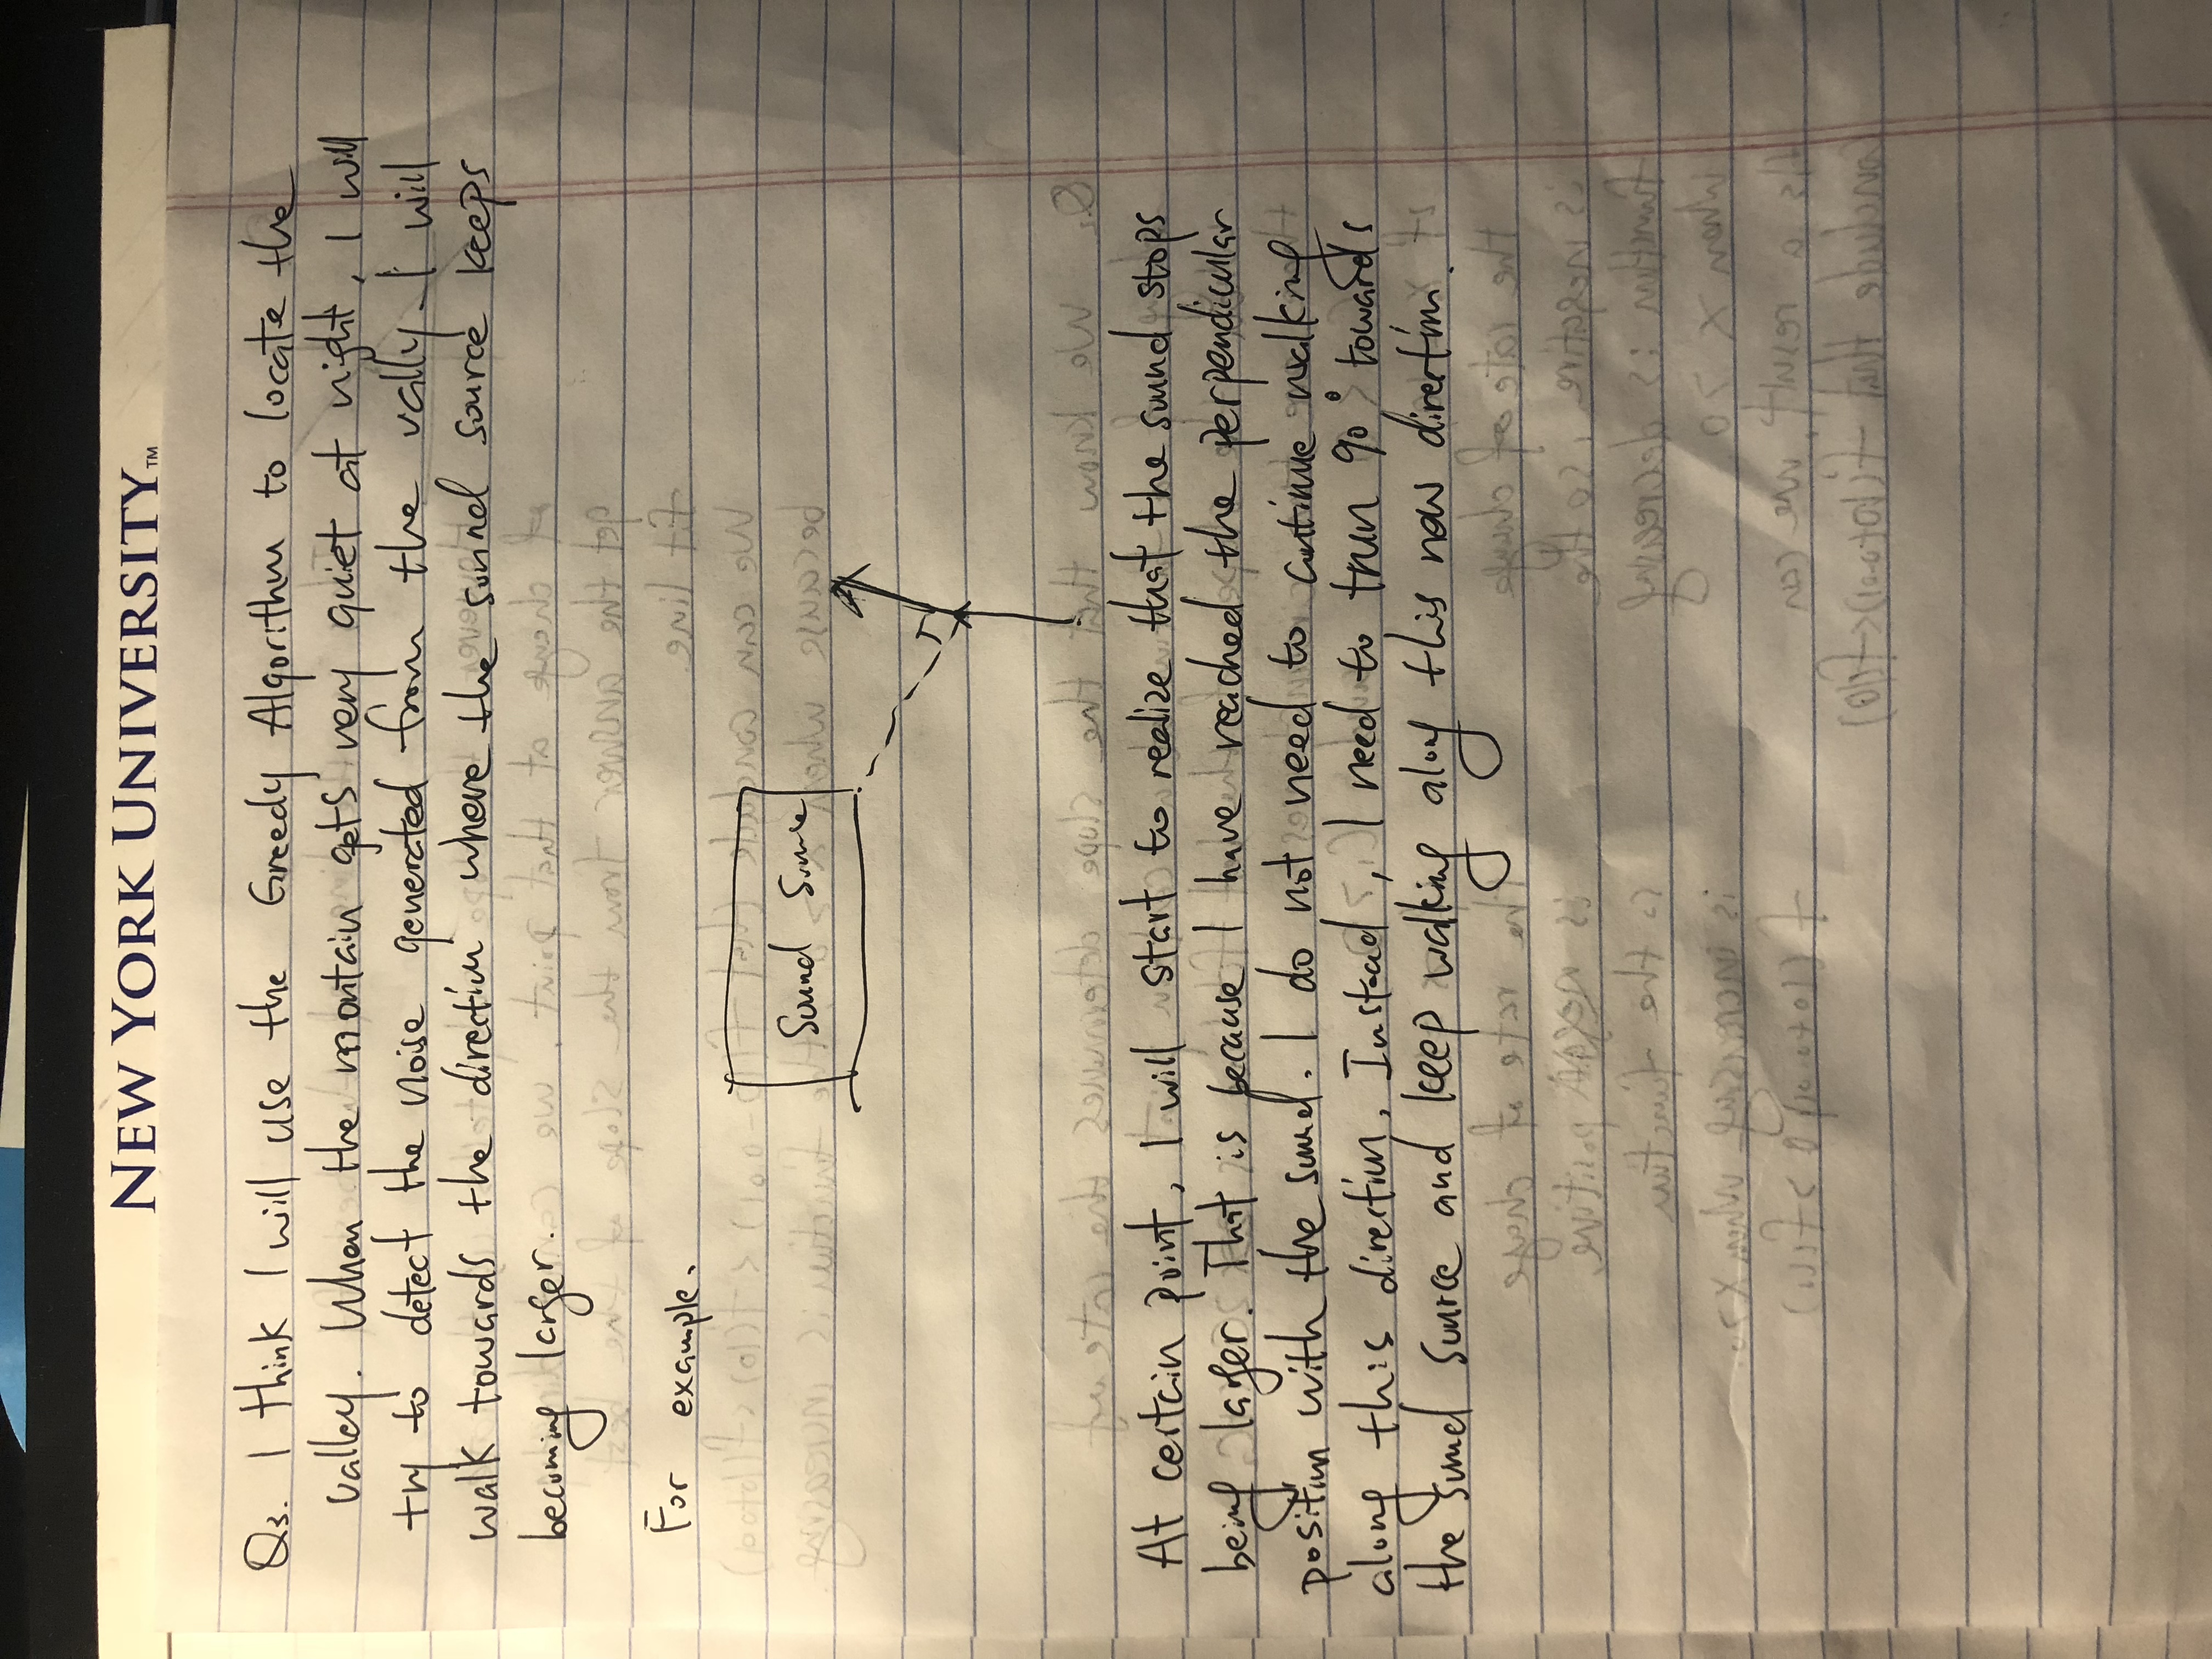 NEW YORK UNIVERSITY™
Q3. I think I will use the Greedy Algorithm to locate the
valley. When the montain gets very quiet at night, I will
try to detect the noise generated from the vally. I will
walk towards the direction where the sound source keeps
becoming larger.
For example.
Sound Source
At certain point, I will start to realize that the sound stops
being larger. That is because I have reached the perpendicular
position with the sound. I do not need to continue walking
along this direction. Instead, I need to trun 90° towards
the sound source and keep walking along this new direction.